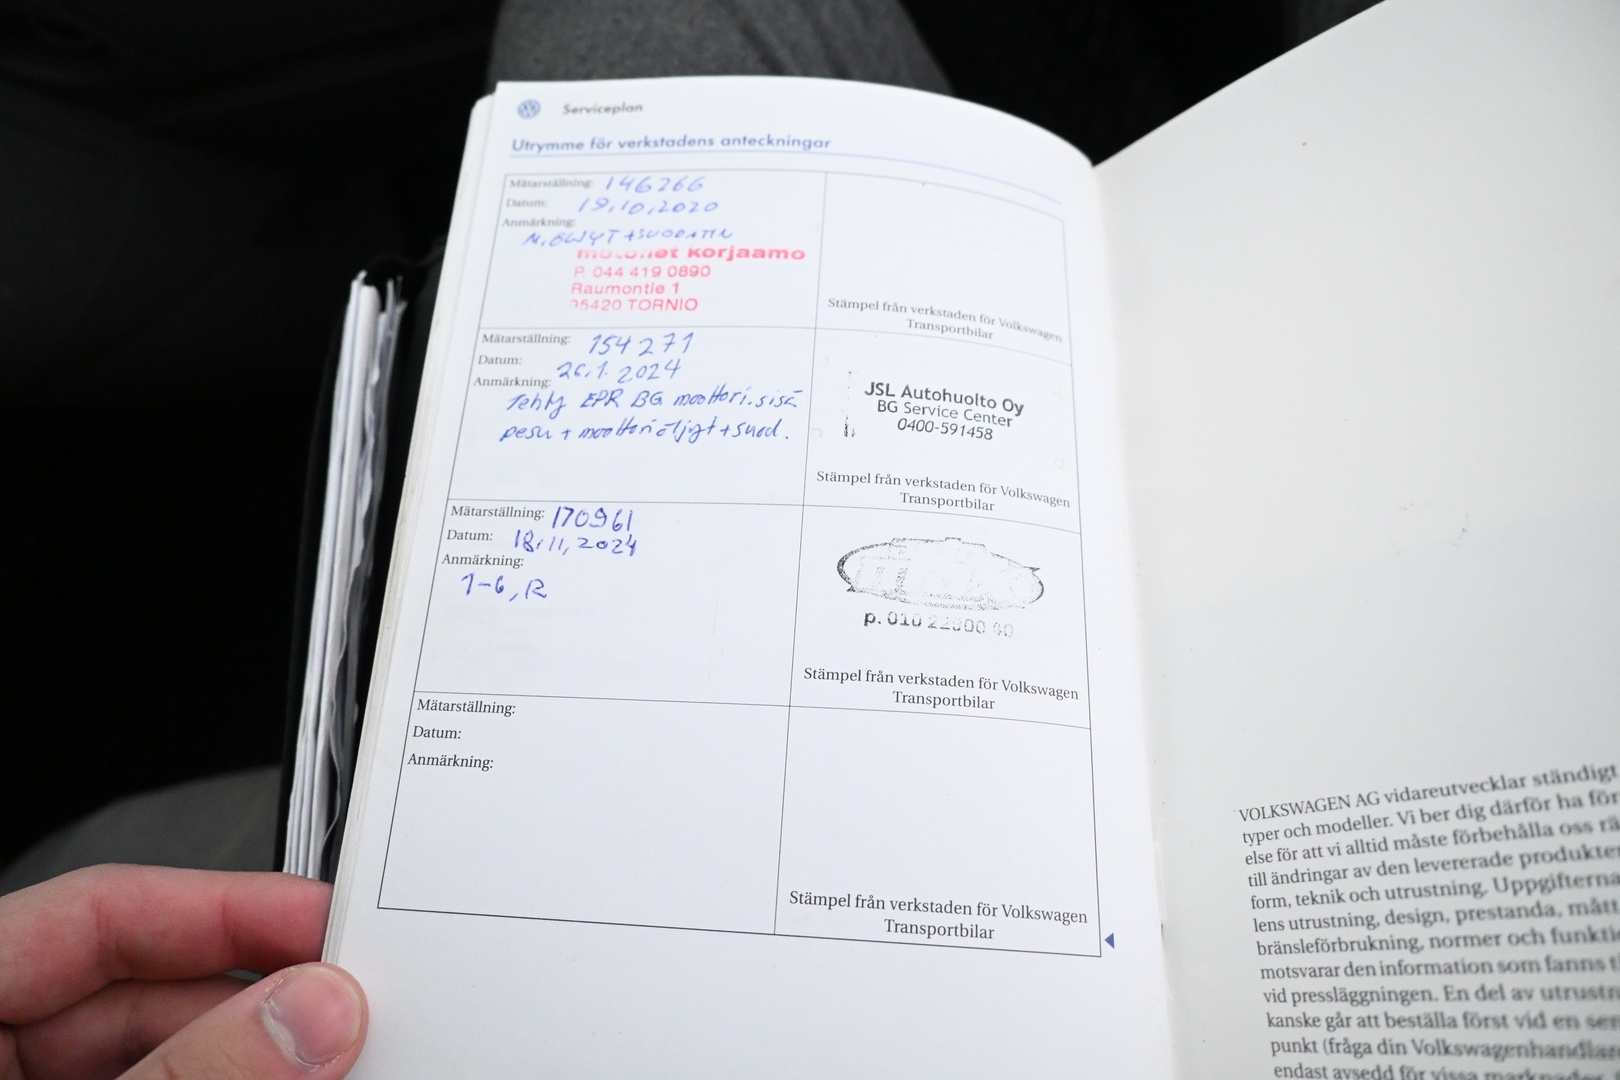 Serviceplan
Utrymme för verkstadens anteckningar
Mätarställning: 146266
Datum: 19.10.2020
Anmärkning:
M.ÖLJYT + SUODATIN
korjaamo
P. 044 419 0890
Raumontie 1
95420 TORNIO
Stämpel från verkstaden för Volkswagen
Transportbilar
Mätarställning: 154271
Datum: 26.1.2024
Anmärkning:
Tehty EPR BG moottori.sisä
pesu + moottoriöljyt + suod.
JSL Autohuolto Oy
BG Service Center
0400-591458
Stämpel från verkstaden för Volkswagen
Transportbilar
Mätarställning: 170961
Datum: 18.11.2024
Anmärkning:
1-6, R
p. 010 22800 40
Stämpel från verkstaden för Volkswagen
Transportbilar
Mätarställning:
Datum:
Anmärkning:
Stämpel från verkstaden för Volkswagen
Transportbilar
VOLKSWAGEN AG vidareutvecklar ständigt
typer och modeller. Vi ber dig därför ha för
else för att vi alltid måste förbehålla oss
till ändringar av den levererade
form, teknik och utrustning.
lens utrustning, design, prestanda,
bränsleförbrukning, normer och
motsvarar den information som fanns
vid pressläggningen. En del av
kanske går att beställa först vid en
punkt (fråga din
endast avsedd för vissa